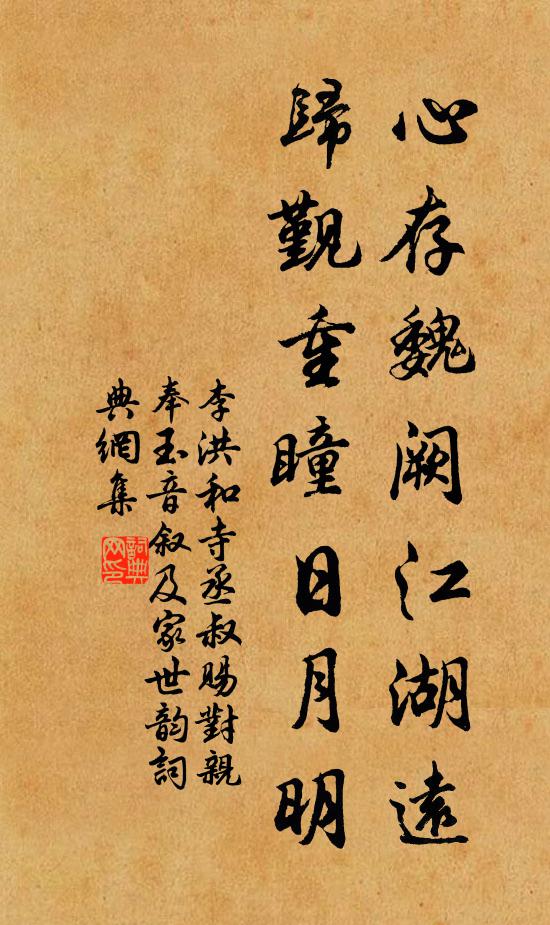 心存魏闕江湖遠
歸覲重瞳日月明
李洪和寺丞叔賜對親
奉玉音叙及家世韵詞
典網集
詞典
网印